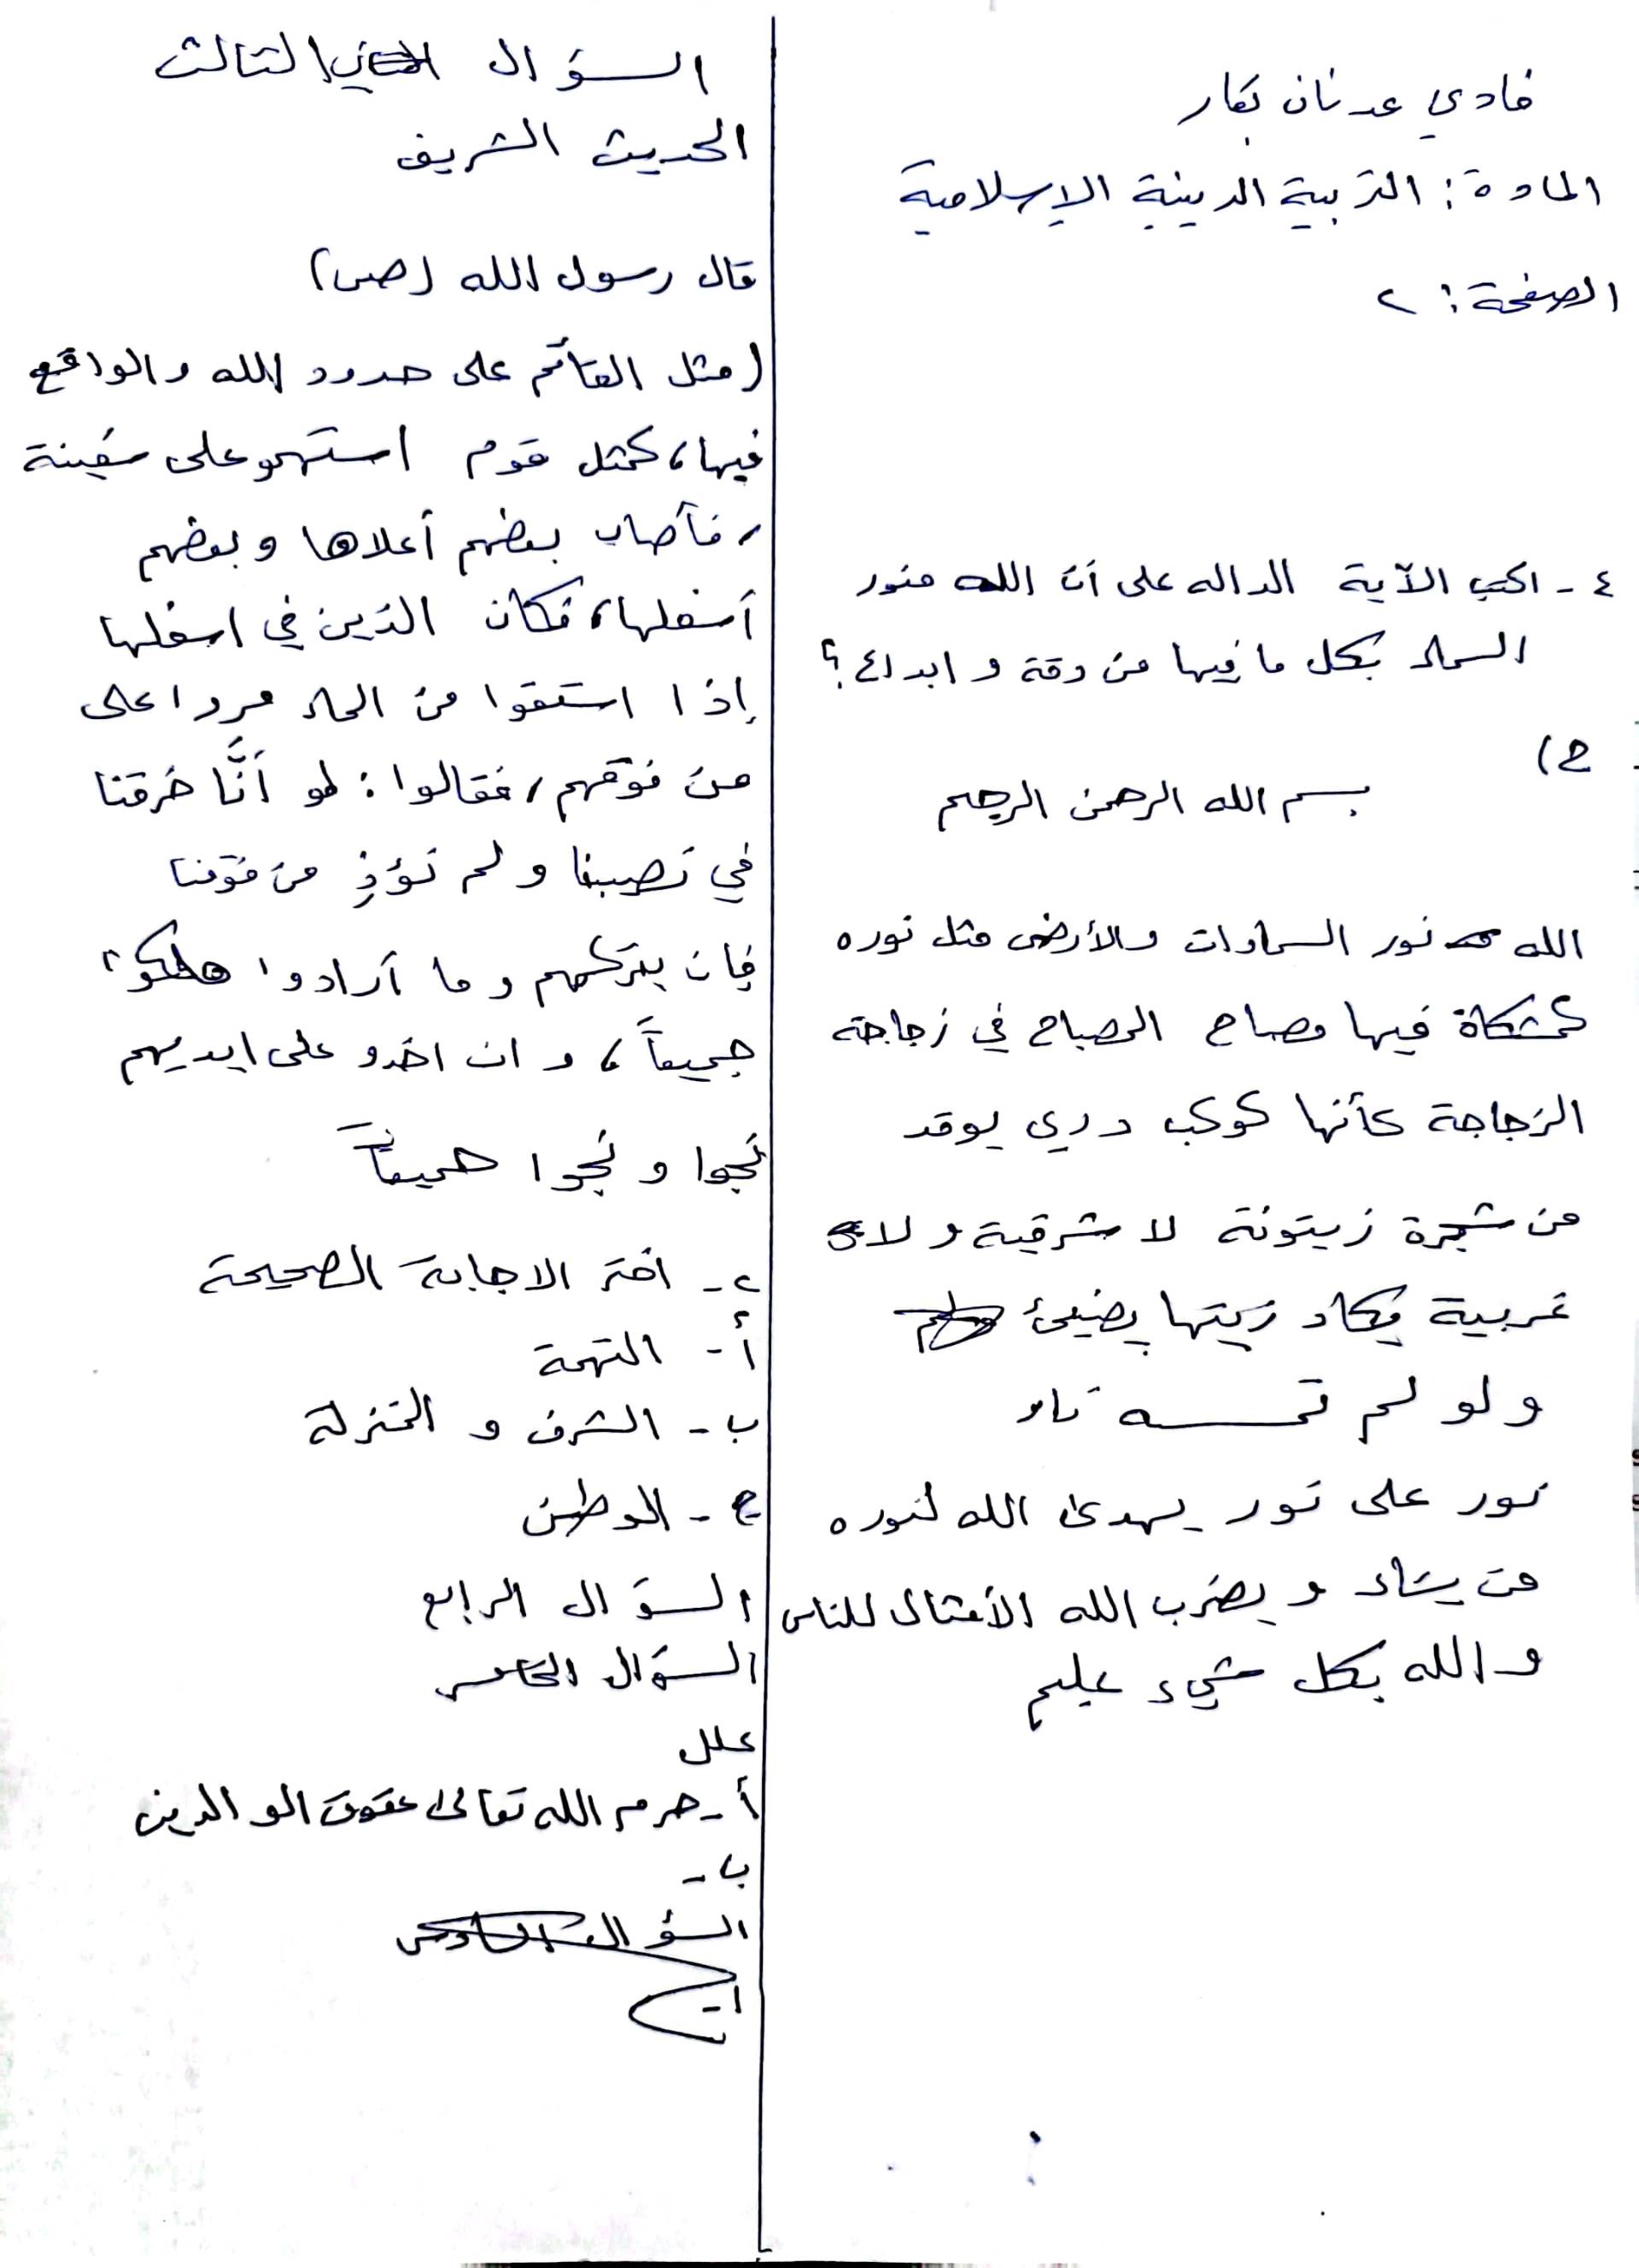 فادي عدنان بكار
المادة: التربية الدينية الإسلامية
الصفحة: ٢
٤ - اكتب الآية الداله على أن الله منور
السماء بكل ما فيها من دقة و ابداع؟
ج)
بسم الله الرحمن الرحيم
الله نور السماوات والأرض مثل نوره
كمشكاة فيها مصباح المصباح في زجاجة
الزجاجة كأنها كوكب دري يوقد
من شجرة زيتونة لا شرقية ولا
غربية يكاد زيتها يضيئ
ولو لم تمسسه نار
نور على نور يهدى الله لنوره
من يشاء ويضرب الله الأمثال للناس
والله بكل شيء عليم
السؤال الثالث
الحديث الشريف
قال رسول الله (ص)
(مثل القائم على حدود الله والواقع
فيها، كمثل قوم استهمو على سفينة
، فأصاب بعضهم أعلاها وبعضهم
أسفلها، فكان الذين في اسفلها
إذا استقوا من الماء مروا على
من فوقهم، فقالوا: لو أنَّا خرقنا
في نصيبنا ولم نؤذِ من فوقنا
فإن يتركهم وما أرادوا هلكو
جميعاً، وان اخذو على ايديهم
نجوا ونجوا جميعاً
٢ - اختر الاجابة الصحيحة
أ - التهمة
ب - الشرف و المنزلة
ج - الوطن
السؤال الرابع
السؤال الخامس
علل
أ - حرم الله تعالى عقوق الوالدين
ب -
السؤال
ا -